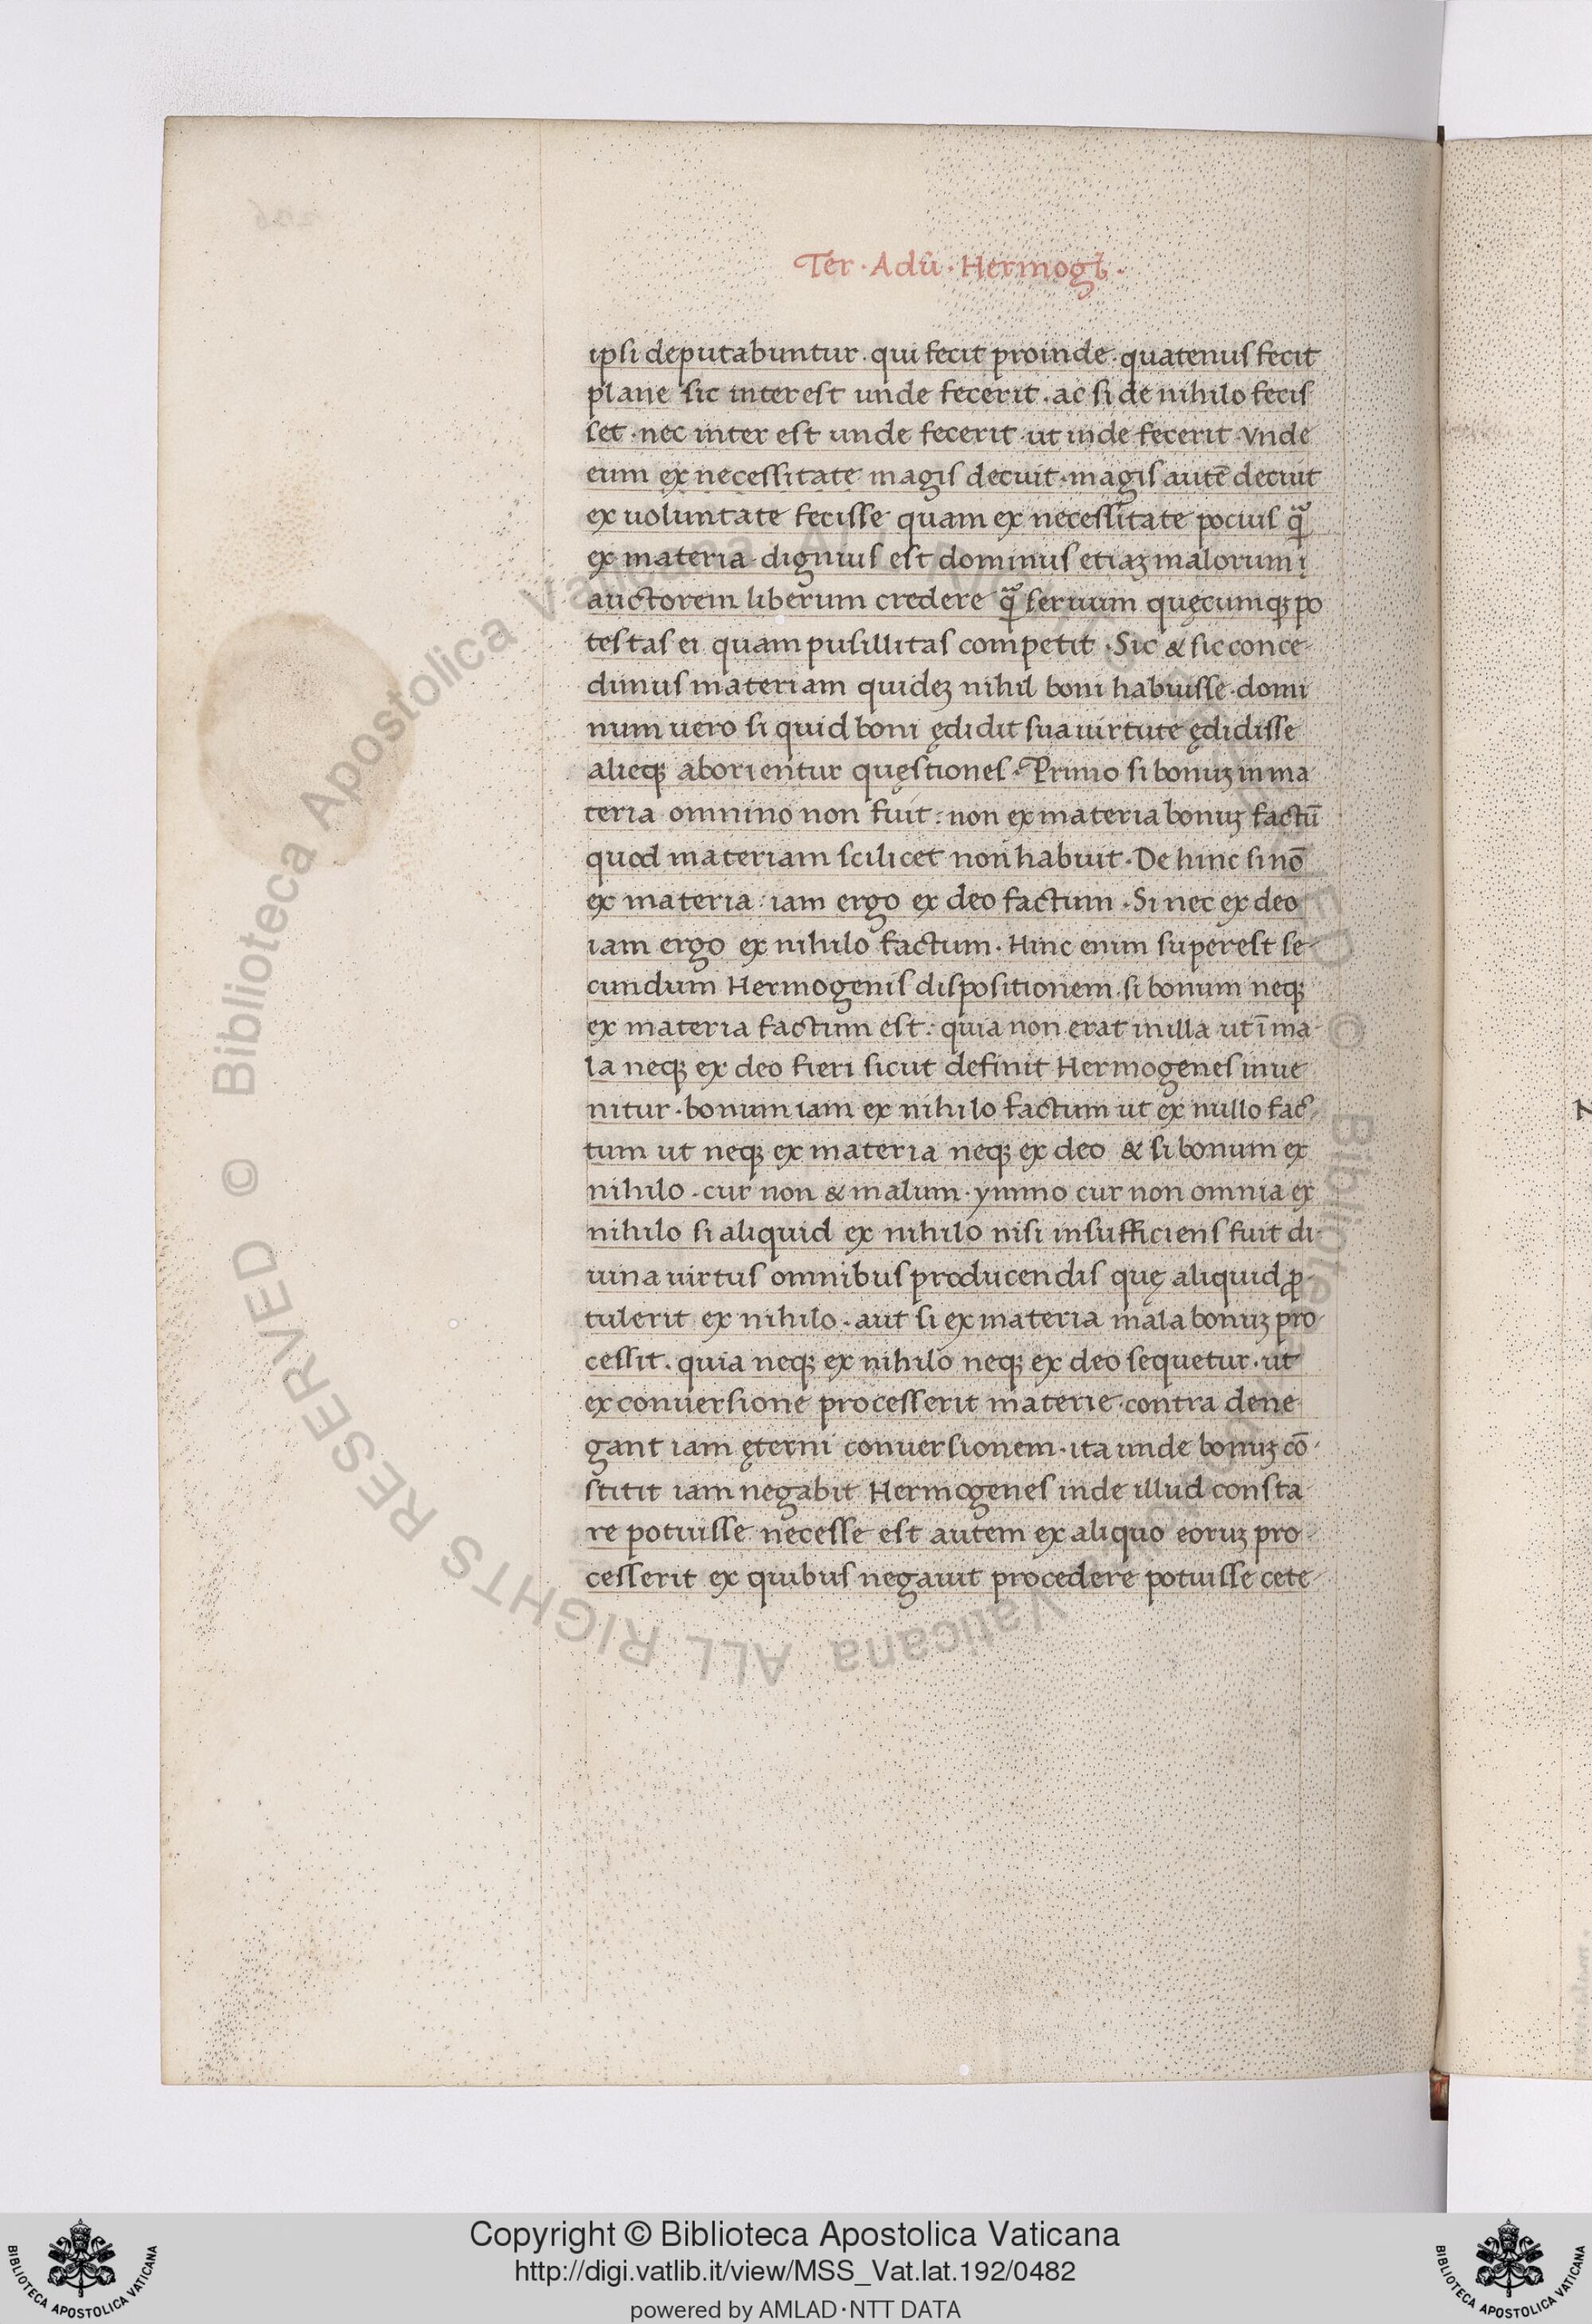 Ter · Adū · Hermogł ·
ipsi deputabuntur . qui fecit proinde . quatenus fecit
plane sic interest unde fecerit . ac si de nihilo fecis
set . nec inter est unde fecerit . ut inde fecerit . vnde
eum ex necessitate magis decuit . magis autē decuit
ex uoluntate fecisse quam ex necessitate pocius ꝗ̃
ex materia . dignius est dominus etiaꝫ malorum ị
auctorem liberum credere ꝗ̃ seruum quęcumqꝫ po
testas ei quam pusillitas competit . Sic & sic conce-
dimus materiam quideꝫ nihil boni habuisse . domi
num uero si quid boni ędidit sua uirtute ędidisse
alieqꝫ aborientur quęstiones . Primo si bonuꝫ in ma
teria omnino non fuit : non ex materia bonuꝫ factū
quod materiam scilicet non habuit . De hinc si nō
ex materia : iam ergo ex deo factum . Si nec ex deo
iam ergo ex nihilo factum . Hinc enim superest se-
cundum Hermogenis dispositionem . si bonum neqꝫ
ex materia factum est : quia non erat in illa ut ī ma-
la neqꝫ ex deo fieri sicut definit Hermogenes inue
nitur . bonum iam ex nihilo factum ut ex nullo fac-
tum ut neqꝫ ex materia neqꝫ ex deo & si bonum ex
nihilo . cur non & malum . ymmo cur non omnia ex
nihilo si aliquid ex nihilo nisi insufficiens fuit di-
uina uirtus omnibus producendis quę aliquid ꝓ-
tulerit ex nihilo . aut si ex materia mala bonuꝫ pro-
cessit . quia neqꝫ ex nihilo neqꝫ ex deo sequetur . ut
ex conuersione processerit materie . contra dene-
gant iam ęterni conuersionem . ita unde bonuꝫ cō-
stitit iam negabit Hermogenes inde illud consta-
re potuisse necesse est autem ex aliquo eoruꝫ pro-
cesserit ex quibus negauit procedere potuisse cete-
© Biblioteca Apostolica Vaticana ALL RIGHTS RESERVED © Biblioteca Apostolica Vaticana ALL RIGHTS RESERVED
Copyright © Biblioteca Apostolica Vaticana
http://digi.vatlib.it/view/MSS_Vat.lat.192/0482
powered by AMLAD·NTT DATA
BIBLIOTECA APOSTOLICA VATICANA
BIBLIOTECA APOSTOLICA VATICANA